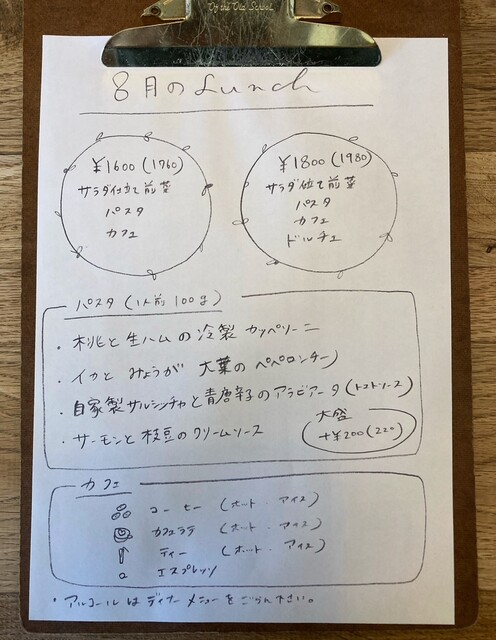 Of the Old School
8月のLunch
¥1600(1760)
サラダ仕立て前菜
パスタ
カフェ
¥1800(1980)
サラダ仕立て前菜
パスタ
カフェ
ドルチェ
パスタ(1人前100g)
・桃と生ハムの冷製カッペリーニ
・イカとみょうが大葉のペペロンチーノ
・自家製サルシッチャと青唐辛子のアラビアータ(トマトソース)
・サーモンと枝豆のクリームソース
大盛
+¥200(220)
カフェ
コーヒー(ホット・アイス)
カフェラテ(ホット・アイス)
ティー(ホット・アイス)
エスプレッソ
・アルコールはディナーメニューをごらん下さい。